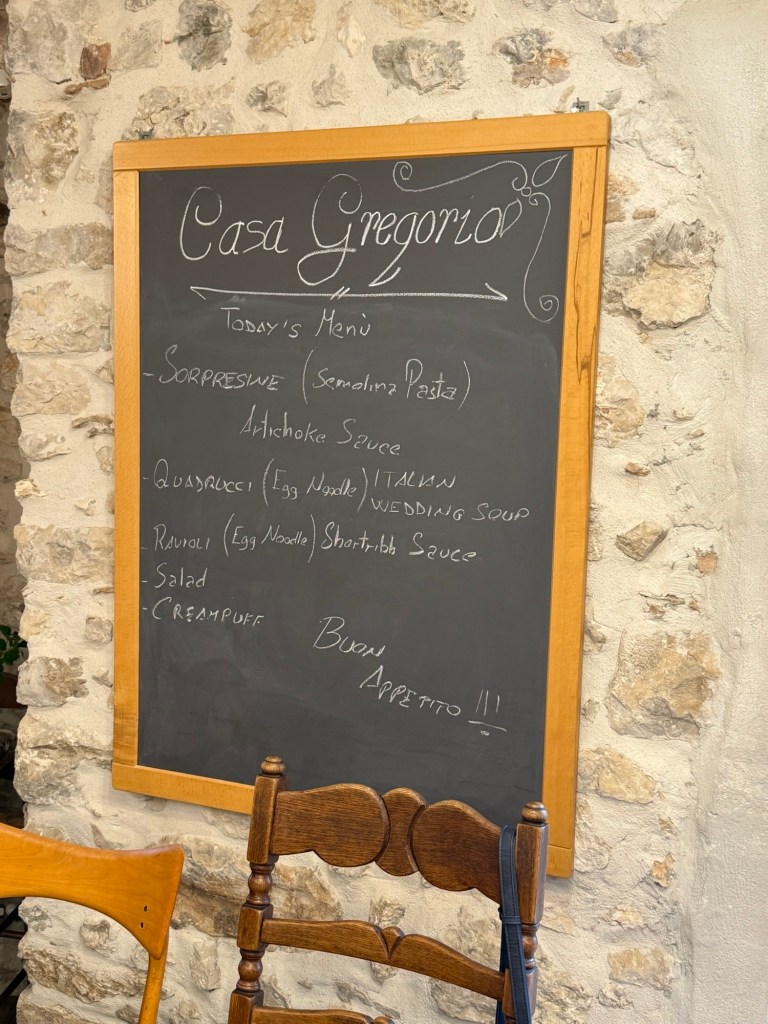 Casa Gregorio
Today's Menù
- SORPRESINE (Semolina Pasta)
Artichoke Sauce
- QUADRUCCI (Egg Noodle) ITALIAN
WEDDING SOUP
- RAVIOLI (Egg Noodle) Shortribb Sauce
- Salad
- CREAMPUFF
BUON
APPETITO !!!